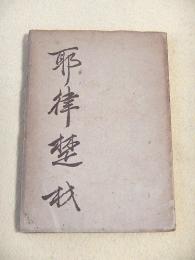 耶律楚材